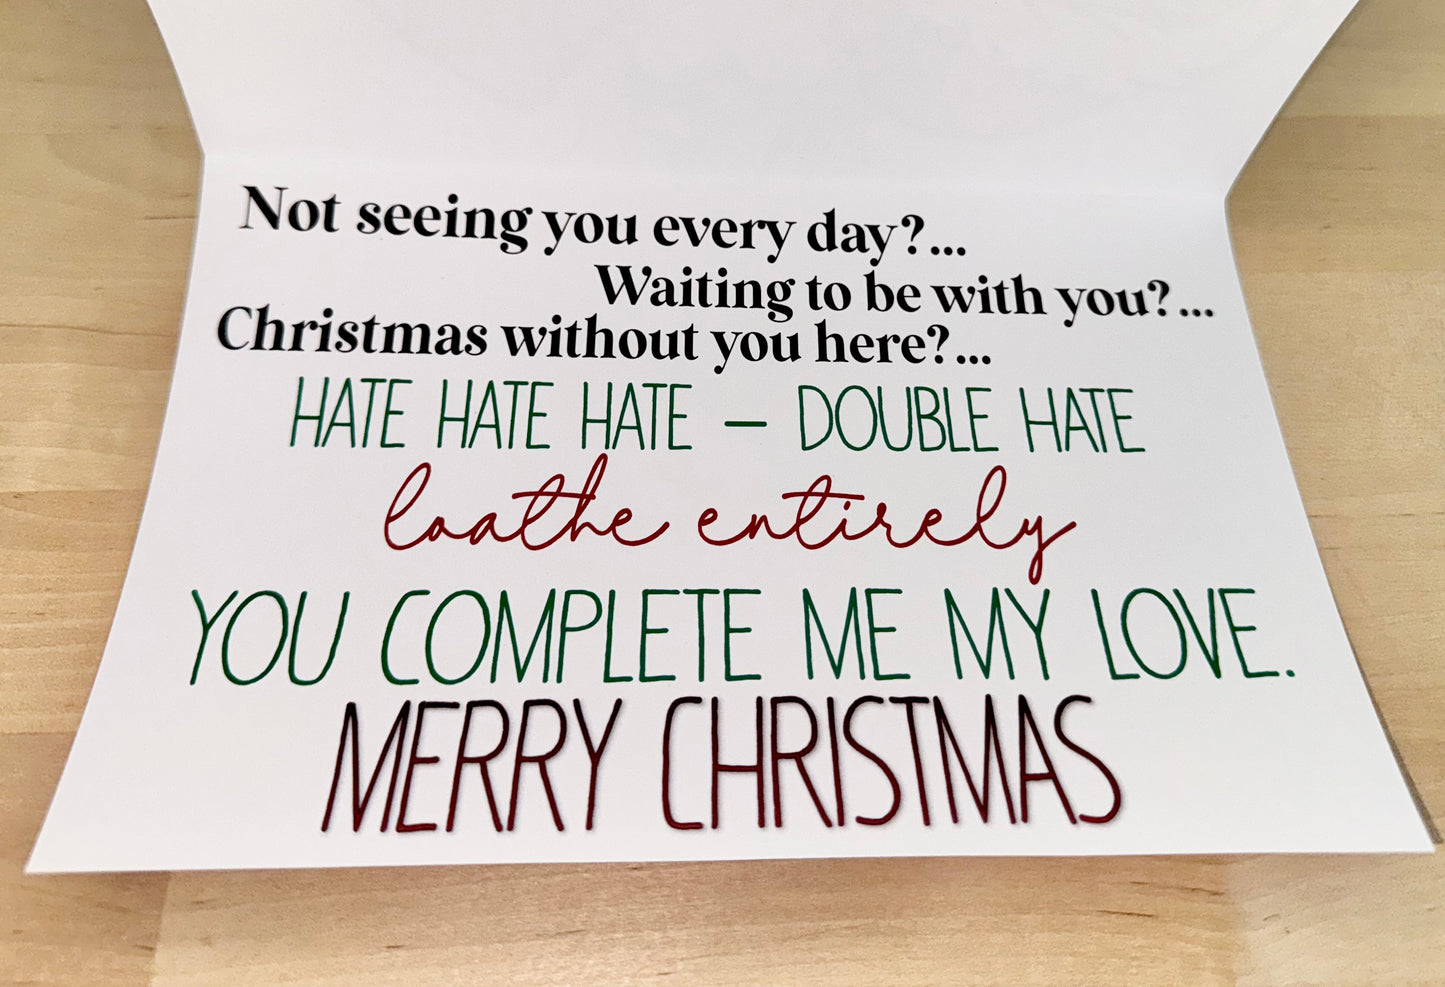 Not seeing you every day?...
Waiting to be with you?...
Christmas without you here?...
HATE HATE HATE – DOUBLE HATE
loathe entirely
YOU COMPLETE ME MY LOVE.
MERRY CHRISTMAS